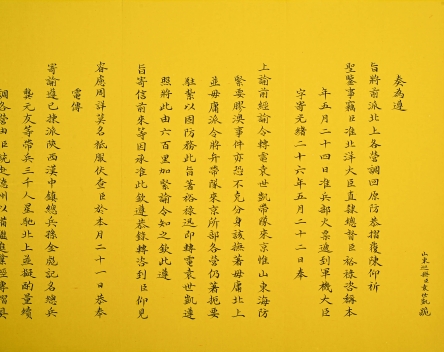 山東巡撫臣袁世凱跪
奏為遵
旨將前派北上各營調回原防恭摺覆陳仰祈
聖鑒事竊臣准北洋大臣直隸總督臣裕祿咨稱本
年五月二十四日准兵部火票遞到軍機大臣
字寄光緒二十六年五月二十二日奉
上諭前經諭令轉電袁世凱帶隊來京惟山東海防
緊要膠澳事件亦恐不克分身該撫著毋庸北上
並毋庸派令將弁帶隊來京所部各營仍著扼要
駐紮以固防務此旨著裕祿迅即轉電袁世凱遵
照將此由六百里加緊諭令知之欽此遵
旨寄信前來等因承准此欽遵恭錄轉咨到臣仰見
睿慮周詳莫名祗服伏查臣於本月二十一日恭奉
電傳
寄諭遵已揀派陝西漢中鎮總兵孫金彪記名總兵
龔元友等帶兵三千人星馳北上並擬酌量續
調各營由臣統赴德州以備